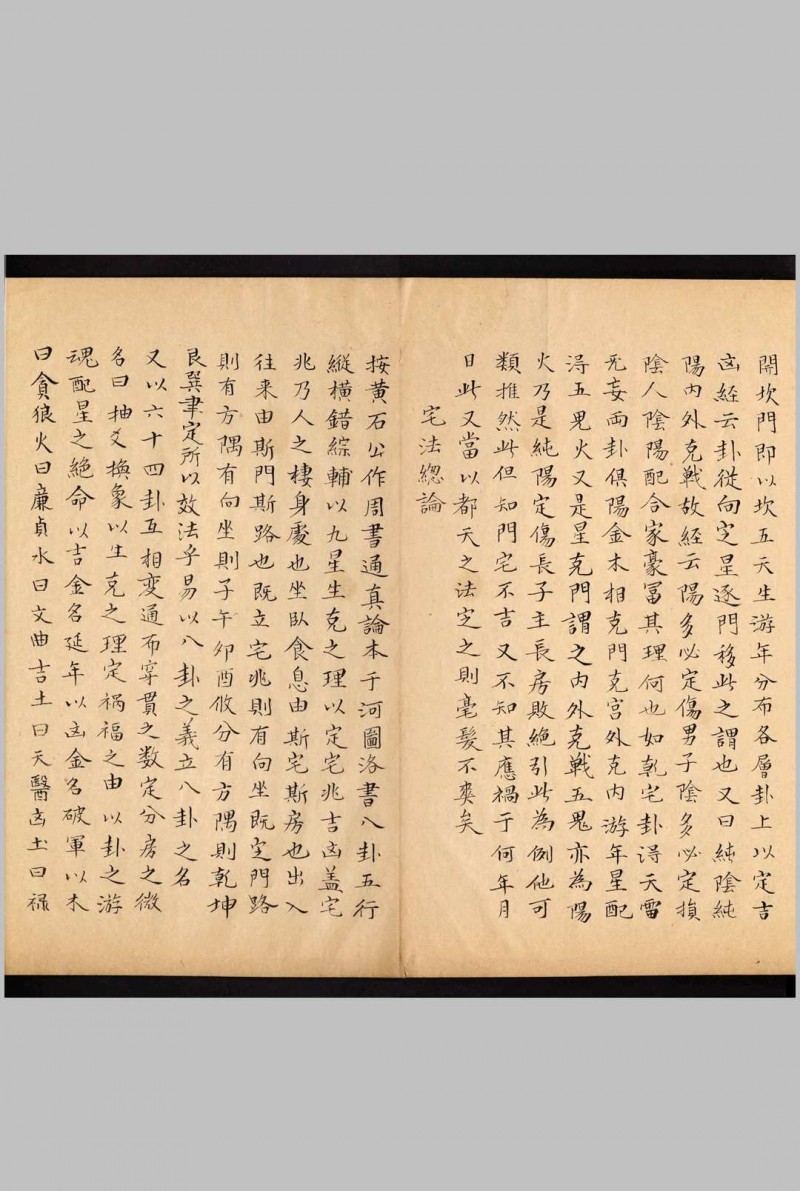 開坎門即以坎五天生游年分布各層卦上以定吉
凶經云卦從向定星逐門移此之謂也又曰純陰純
陽内外克戰故經云陽多必定傷男子陰多必定損
陰人陰陽配合家豪冨其理何也如乾宅卦淂天雷
无妄両卦俱陽金木相克門克宫外克内游年星配
淂五鬼火又是星克門謂之内外克戰五鬼亦為陽
火乃是純陽定傷長子主長房敗絶引此為例他可
類推然此但知門宅不吉又不知其應禍于何年月
日此又當以都天之法定之則毫髮不爽矣
宅法總論
按黄石公作周書通真論本于河圖洛書八卦五行
縱横錯綜輔以九星生克之理以定宅兆吉凶盖宅
兆乃人之棲身處也坐臥食息由斯宅斯房也出入
往来由斯門斯路也既立宅兆則有向坐既定門路
則有方隅有向坐則子午卯酉攸分有方隅則乾坤
艮巽聿定所以效法乎易以八卦之義立八卦之名
又以六十四卦互相变通布穿貫之数定分房之微
名曰抽爻換象以生克之理定禍福之由以卦之游
魂配星之絶命以吉金名延年以凶金名破軍以木
曰貪狼火曰廉貞水曰文曲吉土曰天醫凶土曰禄